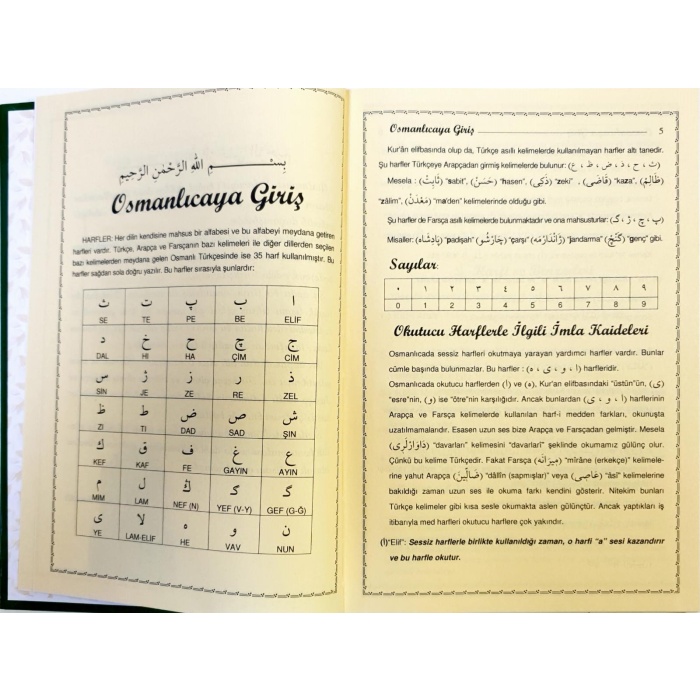 بِسْــــمِ اللهِ الرَّحْمٰنِ الرَّحِيمِ
Osmanlıcaya Giriş
HARFLER: Her dilin kendisine mahsus bir alfabesi ve bu alfabeyi meydana getiren
harfleri vardır. Türkçe, Arapça ve Farsçanın bazı kelimeleri ile diğer dillerden seçilen
bazı kelimelerden meydana gelen Osmanlı Türkçesinde ise 35 harf kullanılmıştır. Bu
harfler sağdan sola doğru yazılır. Bu harfler sırasıyla şunlardır:
ث ت پ ب ا
SE TE PE BE ELİF
د خ ح چ ج
DAL HI HA ÇİM CİM
س ژ ز ر ذ
SİN JE ZE RE ZEL
ظ ط ض ص ش
ZI TI DAD SAD ŞIN
ك ق ف غ ع
KEF KAF FE GAYIN AYIN
م ل ڭ گ گ
MİM LAM NEF (N) YEF (V-Y) GEF (G-Ğ)
ى لا ه و ن
YE LAM-ELİF HE VAV NUN
Osmanlıcaya Giriş 5
Kur'ân elifbasında olup da, Türkçe asıllı kelimelerde kullanılmayan harfler altı tanedir.
Şu harfler Türkçeye Arapçadan girmiş kelimelerde bulunur: (ث ، ح ، ذ ، ض ، ظ ، ع)
Mesela : (ثَابِتْ) "sabit", (حَسَنْ) "hasen", (ذَكِى) "zeki" , (قَاضِى) "kaza", (ظَالِمْ)
"zâlim", (مَعْدَنْ) "ma'den" kelimelerinde olduğu gibi.
Şu harfler de Farsça asıllı kelimelerde bulunmaktadır ve ona mahsusturlar: (پ ، چ ، ژ ، گ)
Misaller: (پَادِشَاه) "padişah" (چَارْشُو) "çarşı" (ژَانْدَارْمَه) "jandarma" (گَنْچْ) "genç" gibi.
Sayılar:
٠ ١ ٢ ٣ ٤ ٥ ٦ ٧ ٨ ٩
0 1 2 3 4 5 6 7 8 9
Okutucu Harflerle İlgili İmla Kaideleri
Osmanlıcada sessiz harfleri okutmaya yarayan yardımcı harfler vardır. Bunlar
cümle başında bulunmazlar. Bu harfler : (ا ، و ، ى ، ه) harfleridir.
Osmanlıcada okutucu harflerden (ا) ve (ه), Kur'an elifbasındaki "üstün"ün, (ى)
"esre"nin, (و) ise "ötre"nin karşılığıdır. Ancak bunlardan (ا ، و ، ى) harflerinin
Arapça ve Farsça kelimelerde kullanılan harf-i medden farkları, okunuşta
uzatılmamalarıdır. Esasen uzun ses bize Arapça ve Farsçadan gelmiştir. Mesela
(دَاوَارْلَرِى) "davarları" kelimesini "davarlarî" şeklinde okumamız gülünç olur.
Çünkü bu kelime Türkçedir. Fakat Farsça (مِيرَانَه) "mîrâne (erkekçe)" kelimele-
rine yahut Arapça (ضَالِّينَ) "dâllîn (sapmışlar)" veya (عَاصِى) "âsî" kelimelerine
bakıldığı zaman uzun ses ile okuma farkı kendini gösterir. Nitekim bunları
Türkçe kelimeler gibi kısa sesle okumakta aslen gülünçtür. Ancak yaptıkları iş
itibarıyla med harfleri okutucu harflere çok yakındır.
(ا)"Elif": Sessiz harflerle birlikte kullanıldığı zaman, o harfi "a" sesi kazandırır
ve bu harfle okutur.